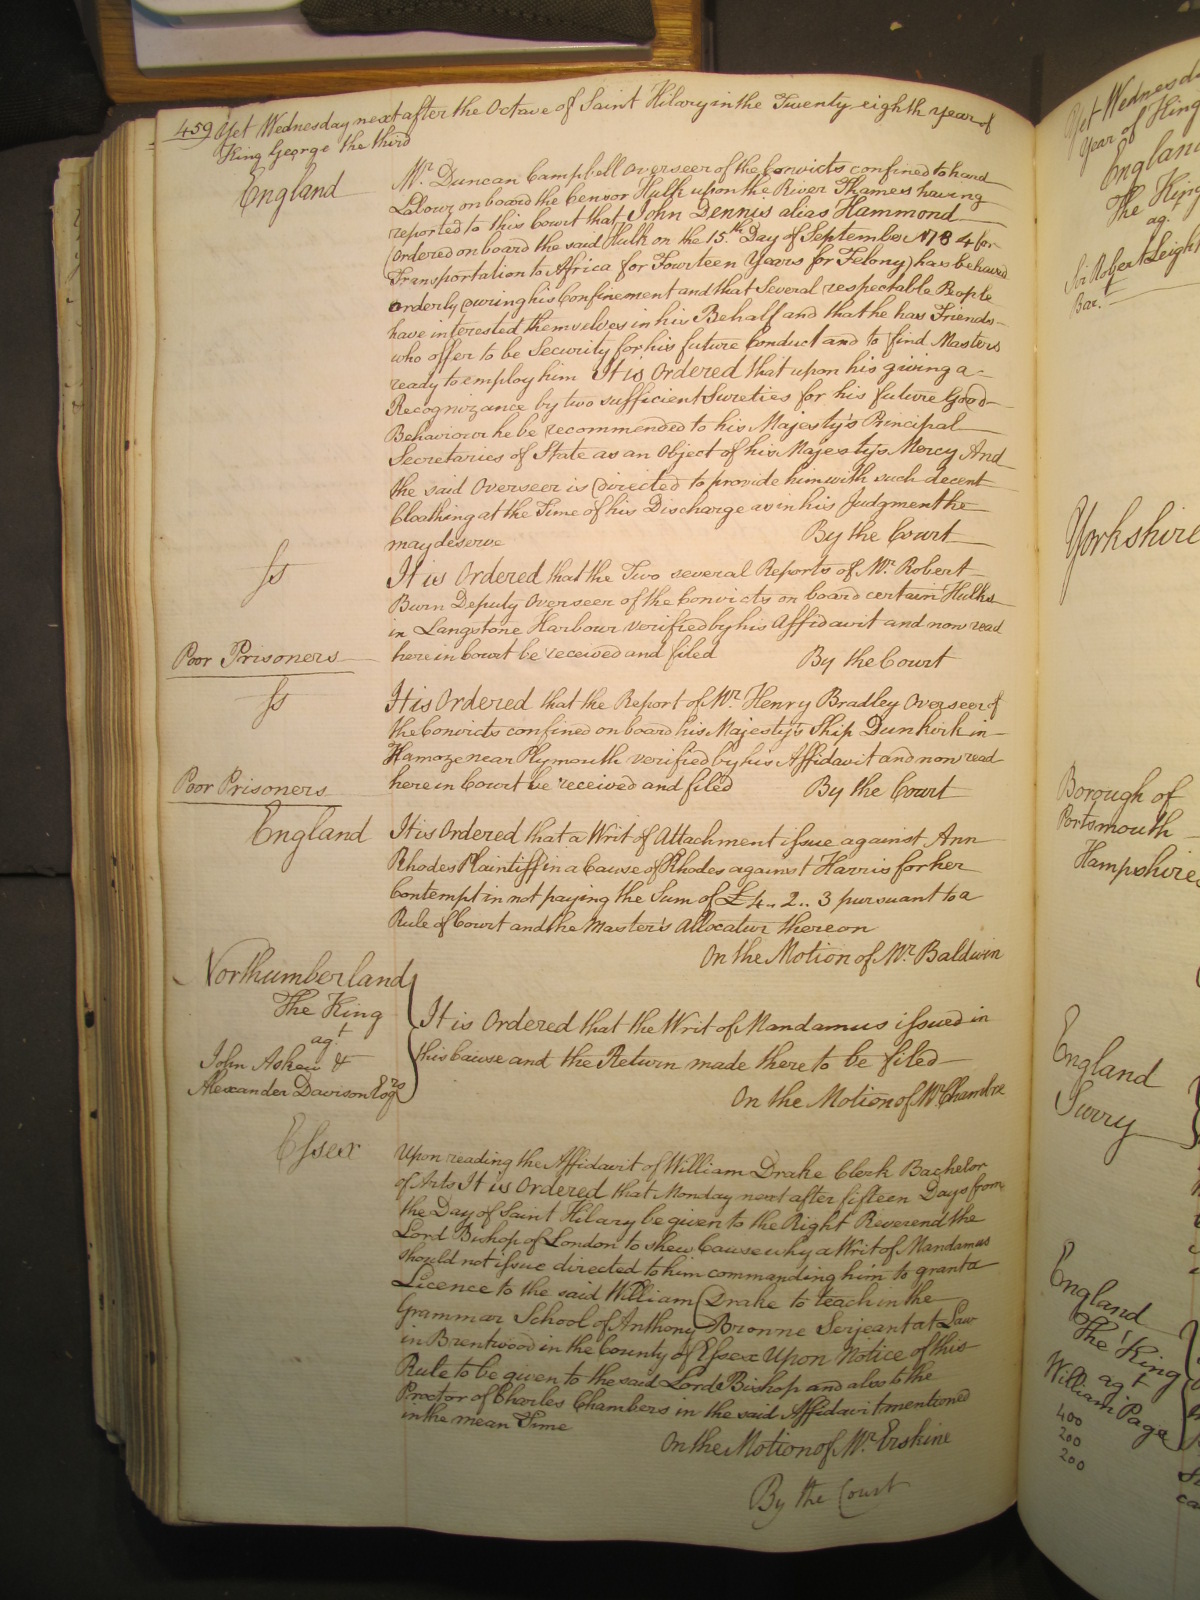 459 Yet Wednesday next after the Octave of Saint Hilary in the Twenty eighth year of
King George the third
England
Mr. Duncan Campbell Overseer of the Convicts confined to hard
Labour on board the Censor Hulk upon the River Thames having
reported to this Court that John Dennis alias Hammond
(ordered on board the said Hulk on the 15th Day of September 1784 for
Transportation to Africa for Fourteen Years for Felony) has behaved
orderly during his Confinement and that Several respectable People
have interested themselves in his Behalf and that he has Friends
who offer to be Security for his future Conduct and to find Masters
ready to employ him It is Ordered that upon his giving a
Recognizance by two sufficient Sureties for his future Good
Behaviour he be recommended to his Majesty's Principal
Secretaries of State as an Object of his Majesty's Mercy And
the said Overseer is directed to provide him with such decent
Cloathing at the Time of his Discharge as in his Judgment he
may deserve By the Court
Ss
It is Ordered that the Two several Reports of Mr. Robert
Burn Deputy Overseer of the Convicts on board certain Hulks
in Langstone Harbour verified by his Affidavit and now read
here in Court be received and filed By the Court
Poor Prisoners
Ss
It is Ordered that the Report of Mr. Henry Bradley Overseer of
the Convicts confined on board his Majesty's Ship Dunkirk in
Hamoze near Plymouth verified by his Affidavit and now read
here in Court be received and filed By the Court
Poor Prisoners
England
It is Ordered that a Writ of Attachment issue against Ann
Rhodes Plaintiff in a Cause of Rhodes against Harris for her
Contempt in not paying the Sum of £4..2..3 pursuant to a
Rule of Court and the Master's Allocatur thereon
On the Motion of Mr. Baldwin
Northumberland
The King
agt.
John Askew &
Alexander Davison Esqrs
It is Ordered that the Writ of Mandamus issued in
this Cause and the Return made there to be filed
On the Motion of Mr. Chambre
Essex
Upon reading the Affidavit of William Drake Clerk Bachelor
of Arts It is Ordered that Monday next after fifteen Days from
the Day of Saint Hilary be given to the Right Reverend the
Lord Bishop of London to shew Cause why a Writ of Mandamus
should not issue directed to him commanding him to grant a
Licence to the said William Drake to teach in the
Grammar School of Anthony Bronne Serjeant at Law
in Brentwood in the County of Essex Upon Notice of this
Rule to be given to the said Lord Bishop and also to the
Proctor of Charles Chambers in the said Affidavit mentioned
in the mean Time
On the Motion of Mr. Erskine
By the Court
Yet Wednesd
Year of King
England
The King
agt.
Sir Robert Leight
Bart.
Yorkshire
Borough of
Portsmouth
Hampshire
England
Surry
England
The King
agt
William Page
400
200
200